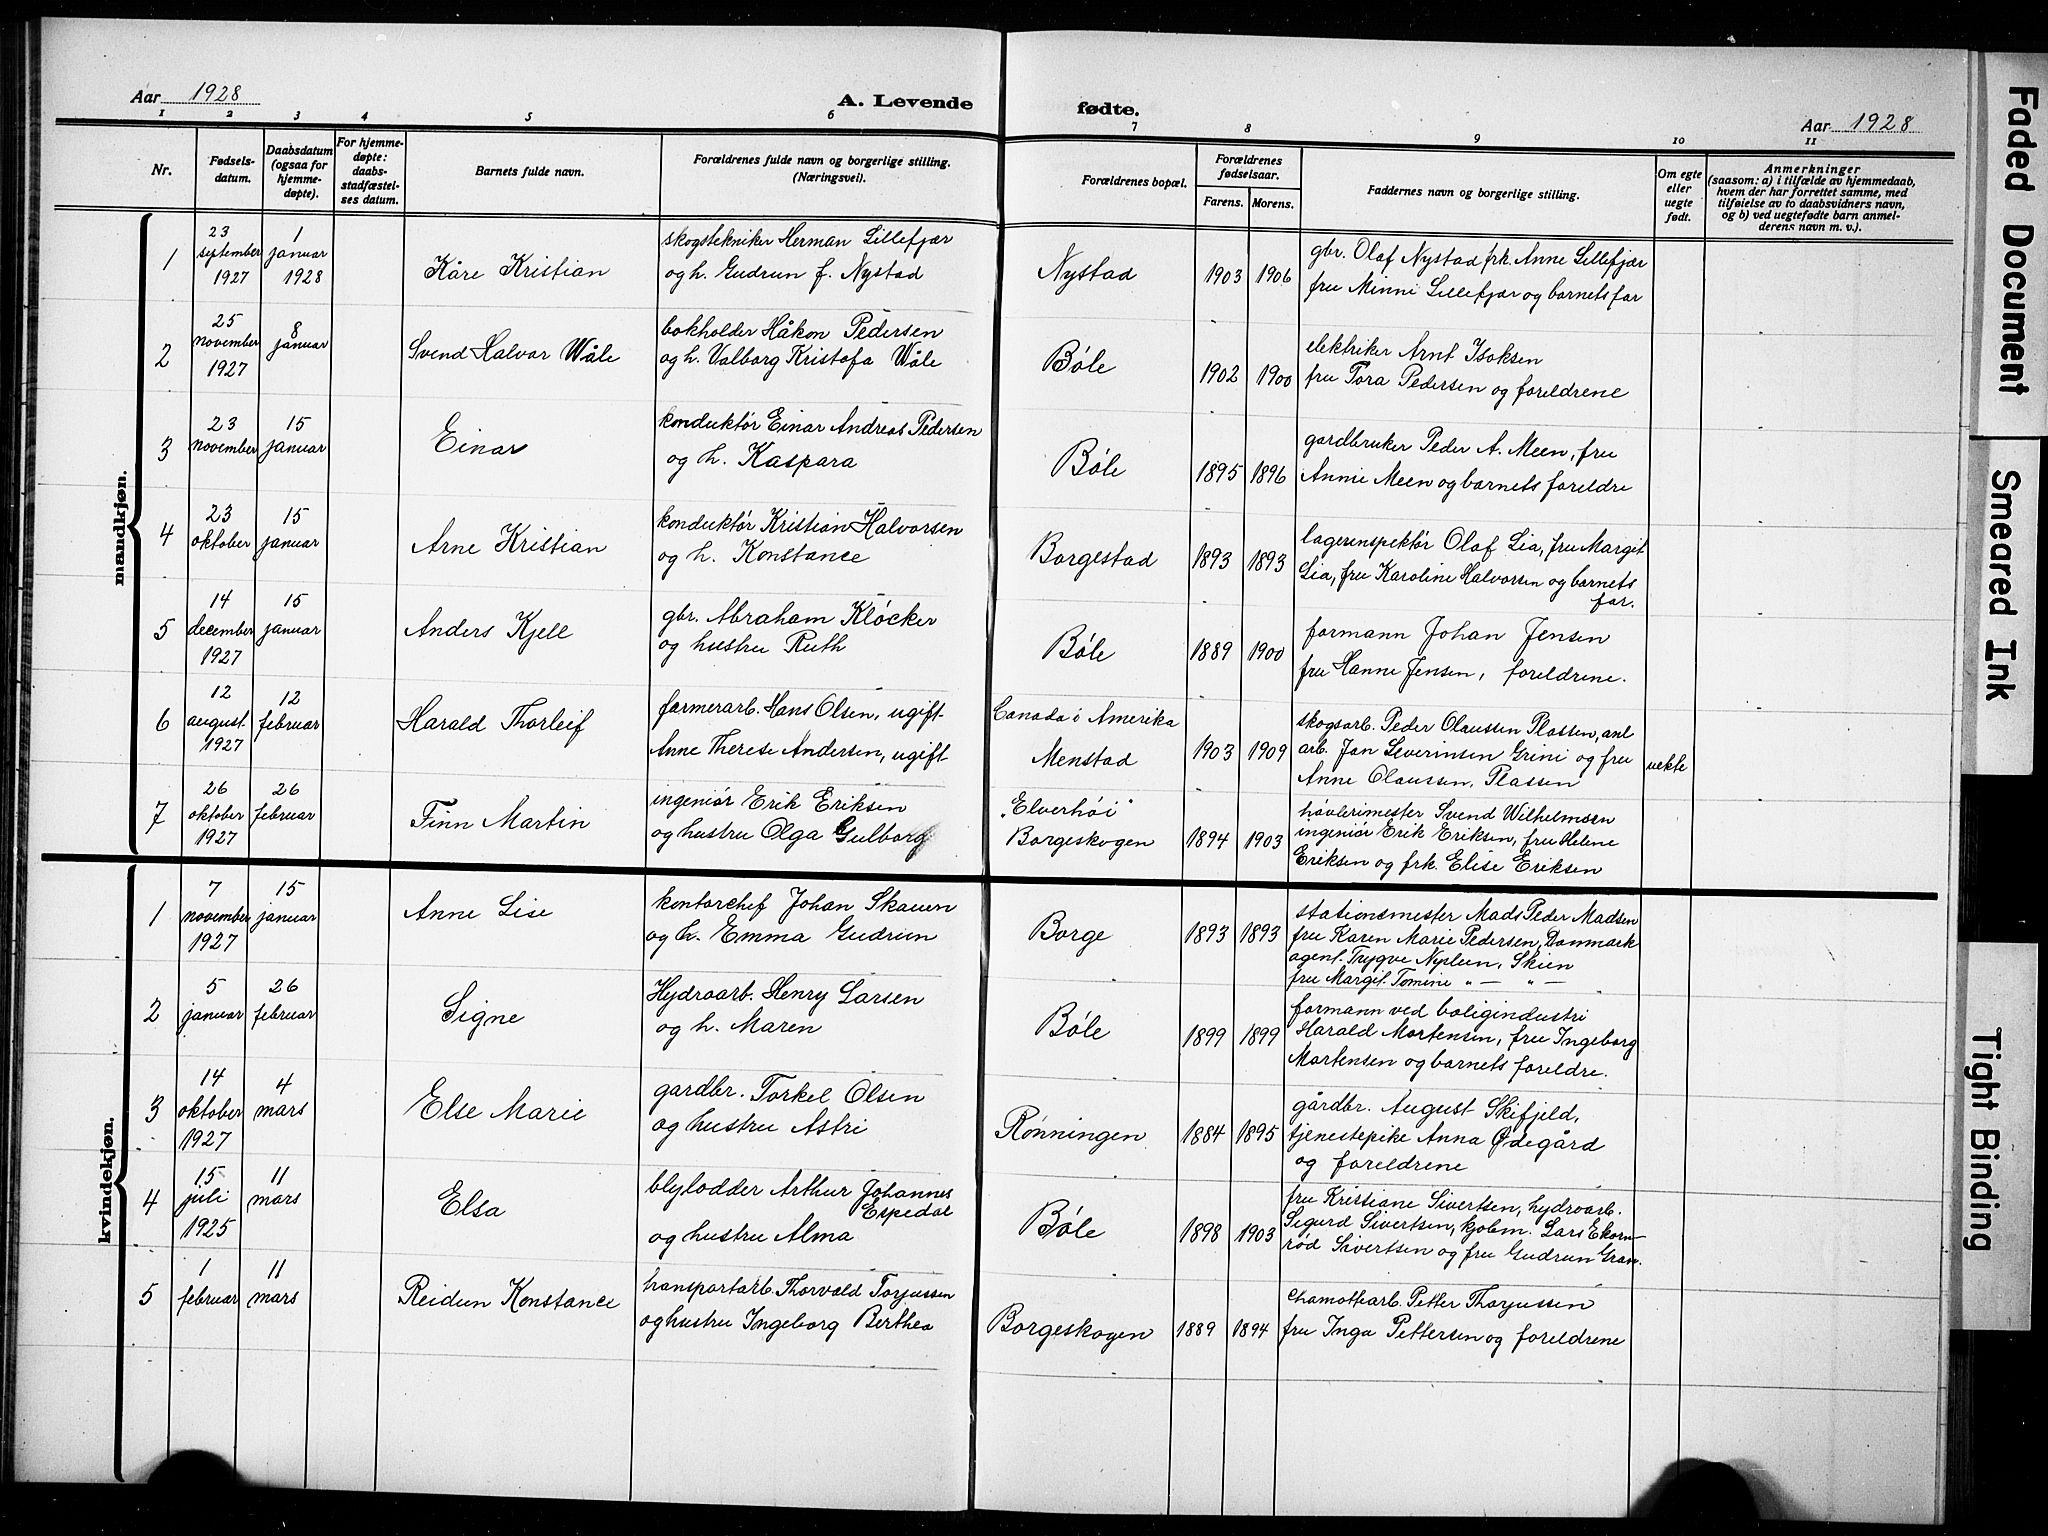 Aar 1928
A. Levende
fødte.
Aar 1928
1 2 3 4 5 6 7 8 9 10 11
Nr.
Fødsels-
datum.
Daabsdatum
(ogsaa for
hjemme-
døpte).
For hjemme-
døpte:
daabs-
stadfæstel-
ses datum.
Barnets fulde navn.
Forældrenes fulde navn og borgerlige stilling.
(Næringsvei).
Forældrenes bopæl.
Forældrenes
fødselsaar.
Farens. Morens.
Faddernes navn og borgerlige stilling.
Om egte
eller
uegte
født.
Anmerkninger
(saasom: a) i tilfælde av hjemmedaab,
hvem der har forrettet samme, med
tilføielse av to daabsvidners navn,
og b) ved uegtefødte barn anmel-
derens navn m. v.).
mandkjøn.
1
23
september
1927
1
januar
1928
Kåre Kristian
skogstekniker Herman Lillefjær
og h. Gudrun f. Nystad
Nystad
1903 1906
gbr. Olaf Nystad frk. Anne Lillefjær
fru Minni Lillefjær og barnets far
2
25
november
1927
8
januar
Svend Halvor Wåle
bokholder Håkon Pedersen
og h. Valborg Kristofa Wåle
Bøle
1902 1900
elektriker Arnt Isaksen
fru Tora Pedersen og foreldrene
3
23
november
15
januar
Einar
konduktør Einar Andreas Pedersen
og h. Kaspara
Bøle
1895 1896
gardbruker Peder A. Meen, fru
Annie Meen og barnets foreldre
4
23
oktober
15
januar
Arne Kristian
konduktør Kristian Halvorsen
og h. Konstance
Borgestad
1893 1893
lagerinspektør Olaf Lia, fru Margit
Lia, fru Karoline Halvorsen og barnets
far.
5
14
december
1927
15
januar
Anders Kjell
gbr. Abraham Kløcker
og hustru Ruth
Bøle
1889 1900
formann Johan Jensen
fru Hanne Jensen, foreldrene.
6
12
august
1927
12
februar
Harald Thorleif
farmerarb. Hans Olsen, ugift
Anne Therese Andersen, ugift
Canada i Amerika
Menstad
1903 1909
skogsarb. Peder Olaussen Plassen, anl
arb. Jan Severinsen Grini og fru
Anne Olaussen, Plassen
uekte
7
26
oktober
1927
26
februar
Finn Martin
ingeniør Erik Eriksen
og hustru Olga Gulborg
"Elverhøi"
Borgeskogen
1894 1903
høvlerimester Svend Wilhelmsen
ingeniør Erik Eriksen, fru Helene
Eriksen og frk. Elise Eriksen
kvindekjøn.
1
7
november
1927
15
januar
Anne Lise
kontorchef Johan Skauen
og h. Emma Gudrun
Borge
1893 1893
stationsmester Mads Peder Madsen
fru Karen Marie Pedersen, Danmark
agent Trygve Nyplun, Skien
fru Margit Tomine " — " —
2
5
januar
26
februar
Signe
Hydroarb. Henry Larsen
og h. Maren
Bøle
1899 1899
formann ved boligindustri
Harald Mortensen, fru Ingeborg
Mortensen og barnets foreldre.
3
14
oktober
1927
4
mars
Else Marie
gardbr. Torkel Olsen
og hustru Astri
Rønningen
1884 1895
gårdbr. August Skifjeld,
tjenestepike Anna Ødegård
og foreldrene
4
15
juli
1925
11
mars
Elsa
blylodder Arthur Johannes
Espedal
og hustru Alma
Bøle
1898 1903
fru Kristiane Sivertsen, hydroarb.
Sigurd Sivertsen, kjøbm. Lars Ekorn-
rød Sivertsen og fru Gudrun Gran.
5
1
februar
11
mars
Reidun Konstance
transportarb. Thorvald Torjussen
og hustru Ingeborg Berthea
Borgeskogen
1889 1894
chamottearb. Petter Thorjussen
fru Inga Pettersen og foreldrene
Faded Document
Smeared Ink
Tight Binding